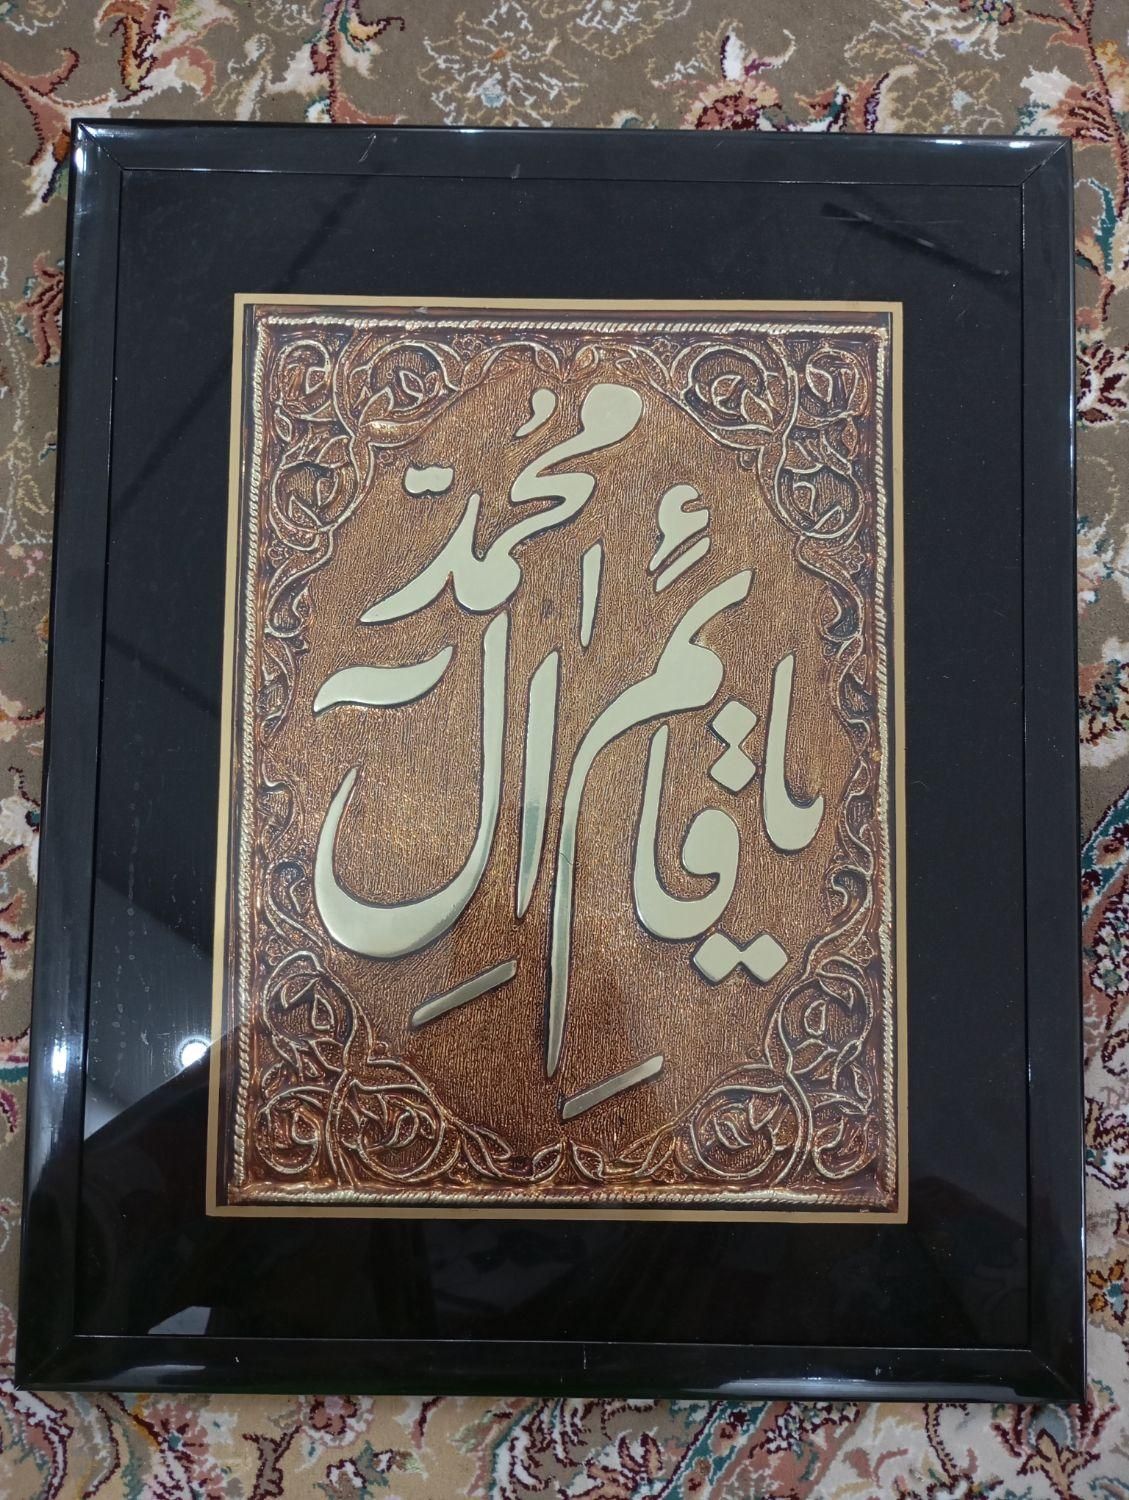 یا قائم آلِ محمّد